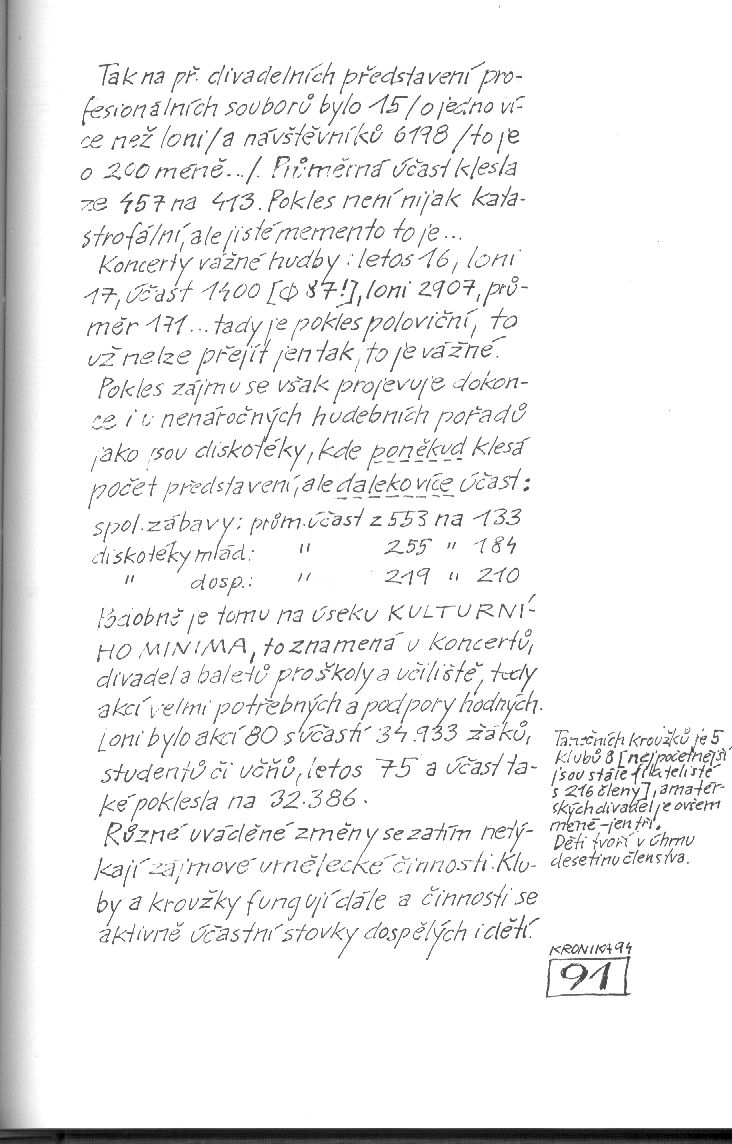 Tak na př. divadelních představení pro-
fesionálních souborů bylo 15 /o jedno ví-
ce než loni/ a návštěvníků 6198 /to je
o 200 méně.../. Průměrná účast klesla
ze 457 na 413. Pokles není nijak kata-
strofální, ale jisté memento to je...
Koncerty vážné hudby: letos 16, loni
17, účast 1400 [Φ 87!], loni 2907, prů-
měr 171... tady je pokles poloviční, to
už nelze přejít jen tak, to je vážné.
Pokles zájmu se však projevuje dokon-
ce i u nenáročných hudebních pořadů
jako jsou diskotéky, kde poněkud klesá
počet představení, ale daleko více účast:
spol. zábavy: prům. účast z 553 na 133
diskotéky mlád.: " 255 " 184
" dosp.: " 219 " 210
Podobně je tomu na úseku KULTURNÍ-
HO MINIMA, to znamená u koncertů,
divadel a baletů pro školy a učiliště, tedy
akcí velmi potřebných a podpory hodných.
Loni bylo akcí 80 s účastí 34.933 žáků,
studentů či učňů, letos 75 a účast ta-
ké poklesla na 32.386.
Různé uváděné změny se zatím netý-
kají zájmové umělecké činnosti. Klu-
by a kroužky fungují dále a činnosti se
aktivně účastní stovky dospělých i dětí.
Tanečních kroužků je 5
klubů 8 [nejpočetnější
jsou stále filatelisté
s 216 členy], amatér-
ských divadel je ovšem
méně - jen tři.
Děti tvoří v úhrnu
desetinu členstva.
KRONIKA 94
91